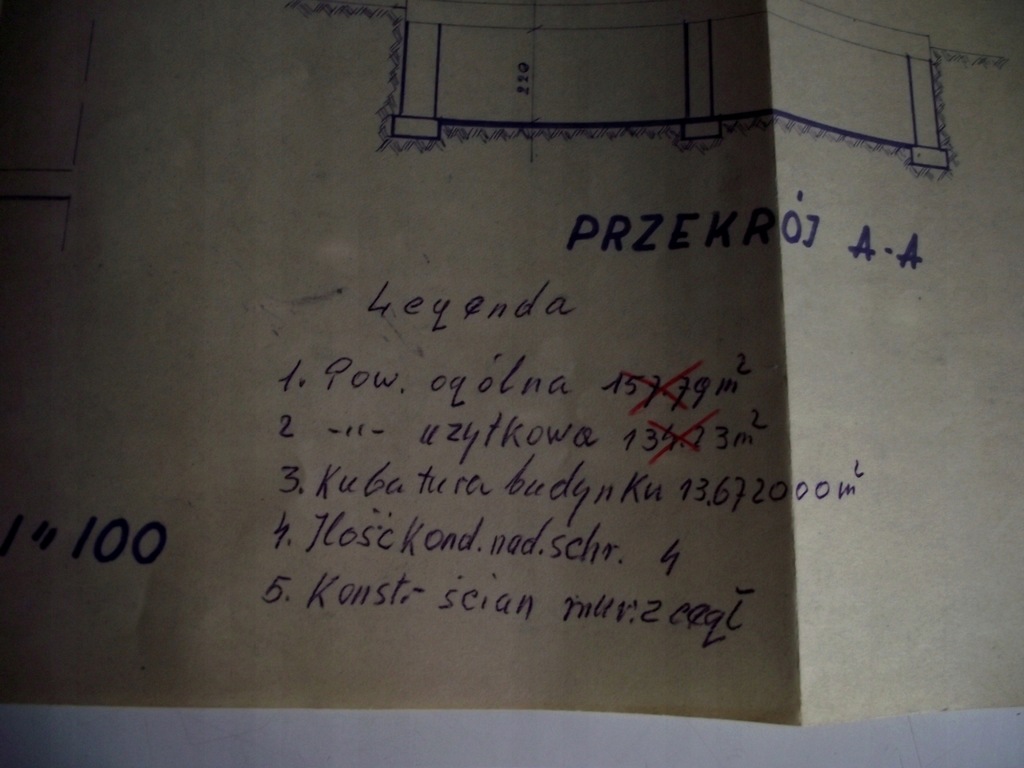 220
PRZEKRÓJ A-A
Legenda
1. Pow. ogólna m²
2 -"- uzytkowa m²
3. Kubatura budynku 13.672000m²
4. Ilość Kond. nad. schr. 4
5. Konstr ścian mur. z cegł
1:100